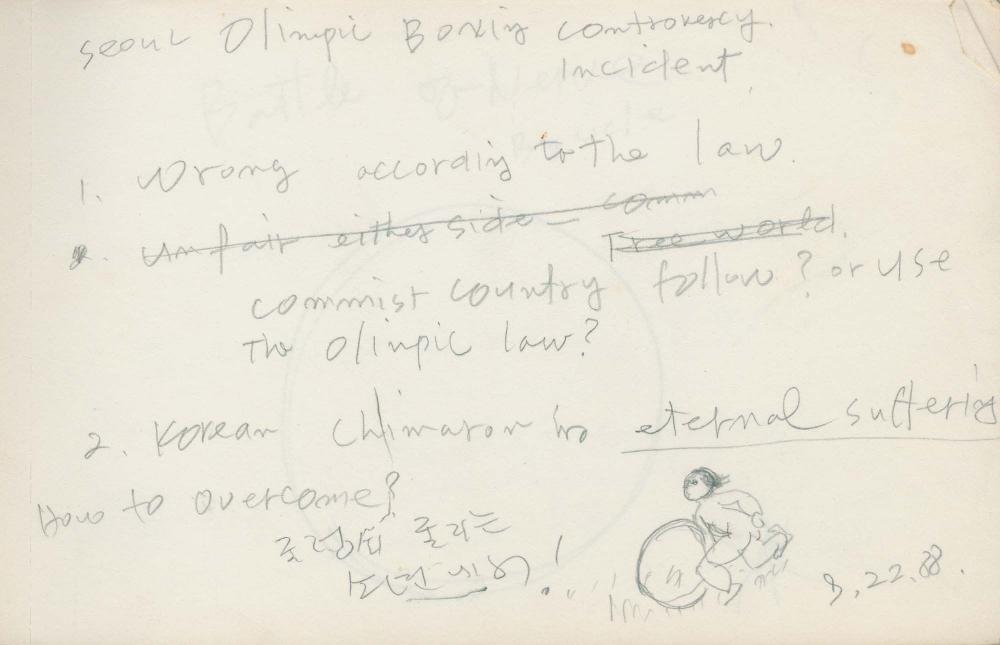 seoul Olimpic Boxing controvercy.
Incident
1. Wrong according to the law.
2. Unfair either side – comm
Free world.
commist country follow? or use
The Olimpic law?
2. Korean eternal suffering
How to overcome?
모르는
!
9.22.88.